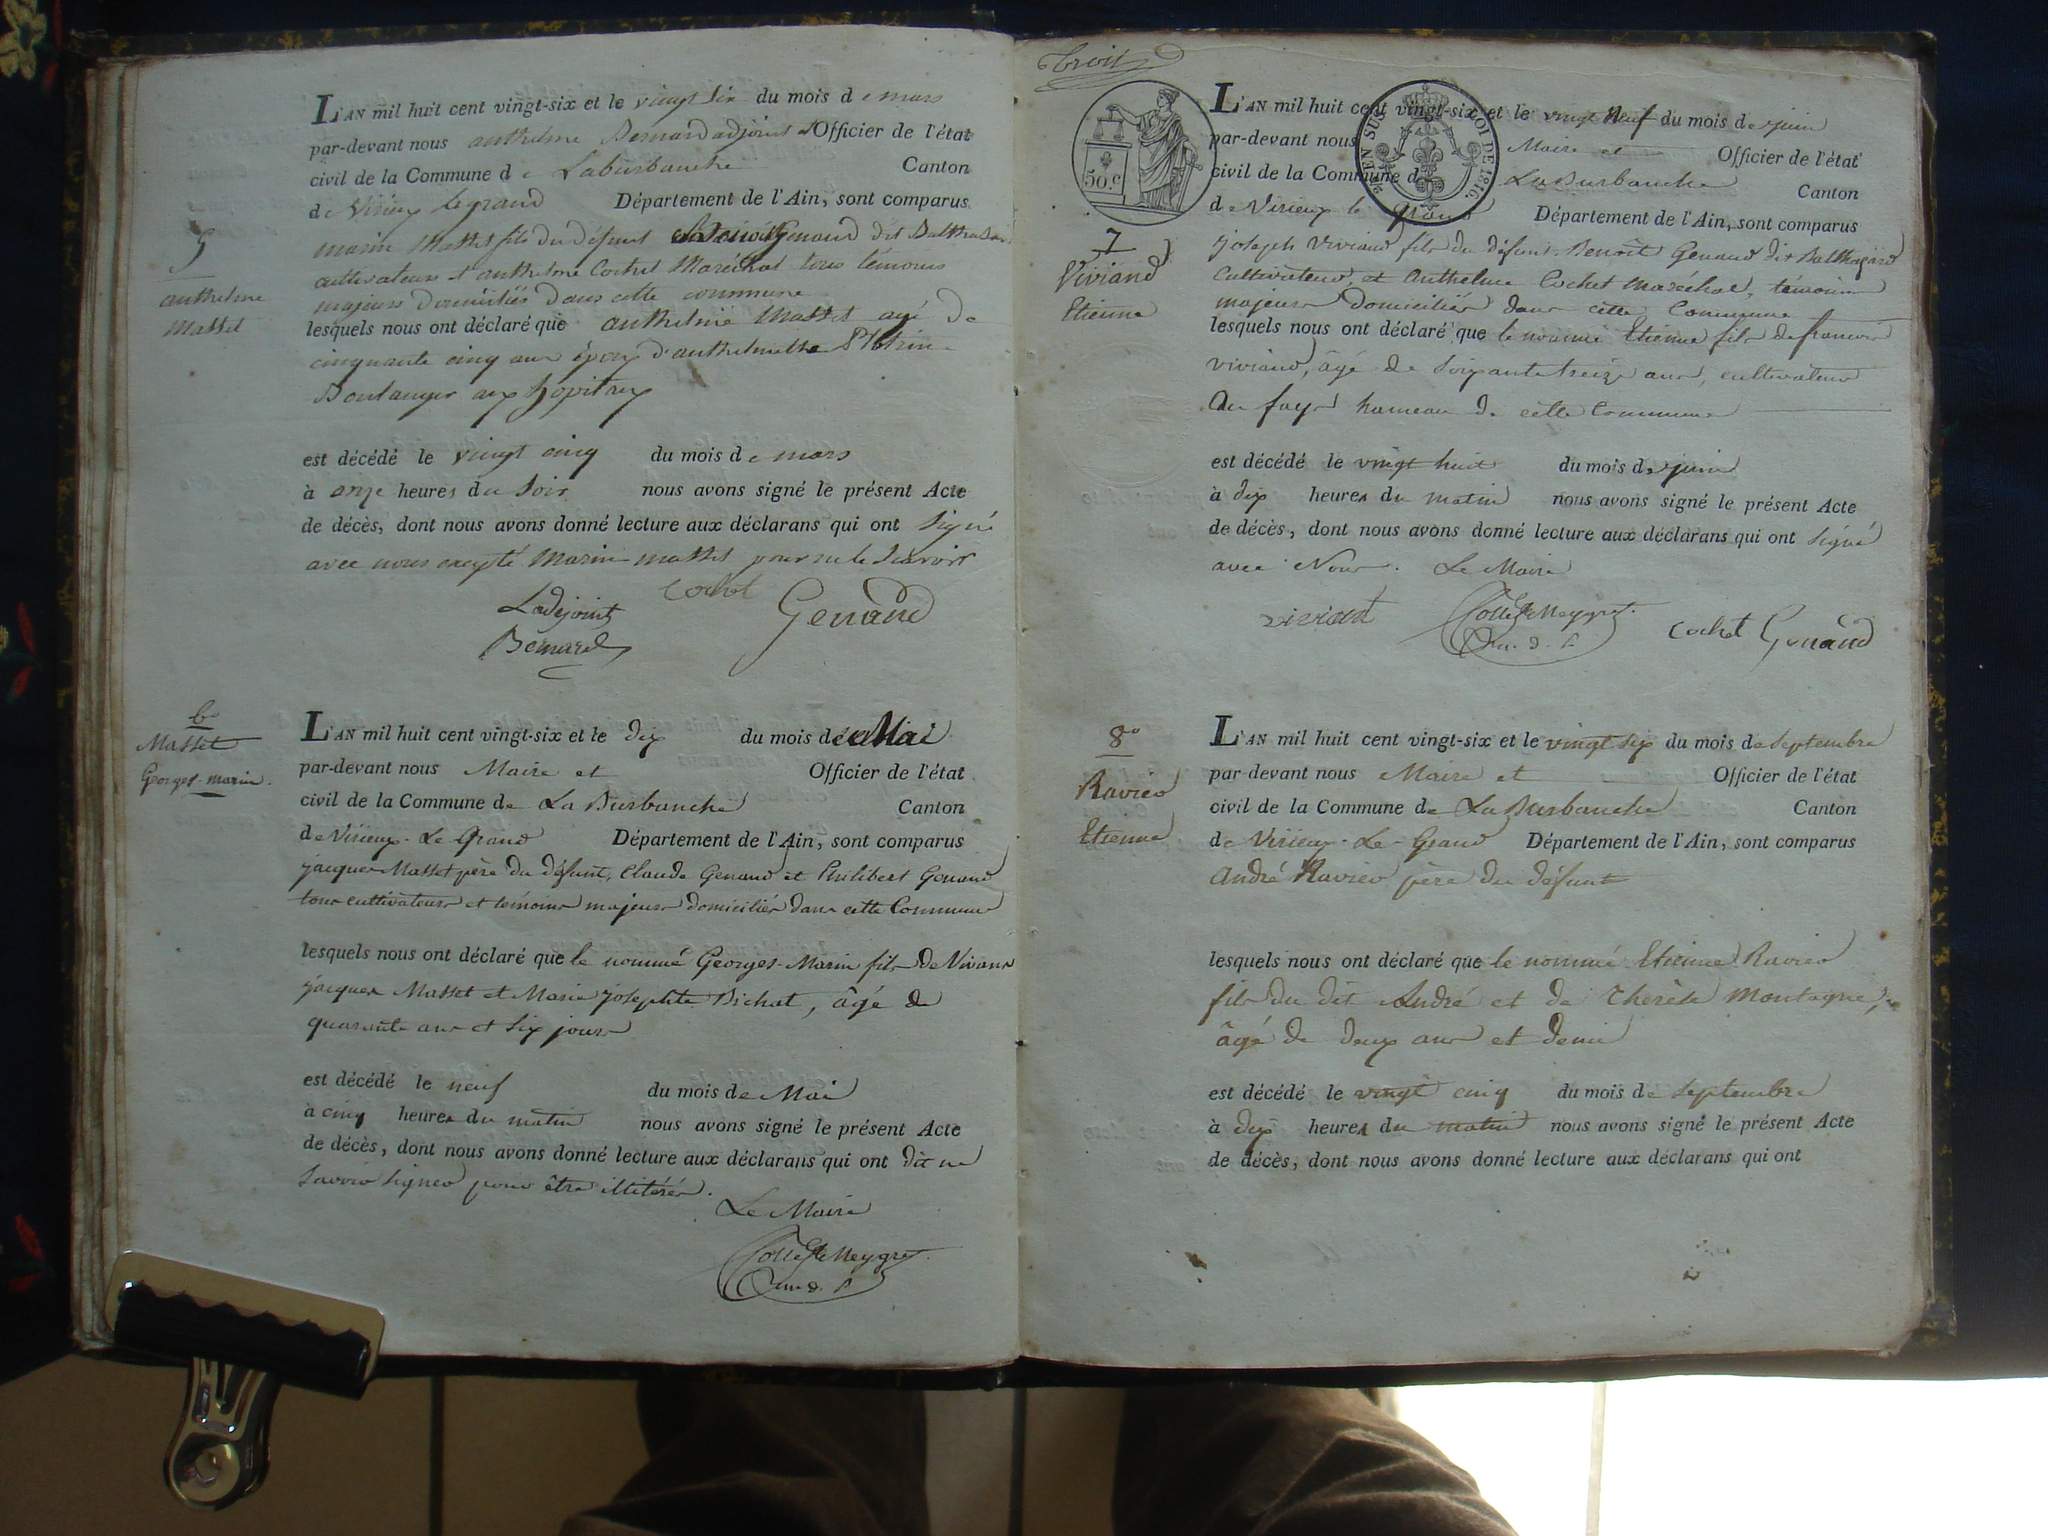 5
anthelme
Masset
L'AN mil huit cent vingt-six et le vingt six du mois de mars
par-devant nous anthelme Bernard adjoint Officier de l'état
civil de la Commune de Laburbanche Canton
de Virieux le grand Département de l'Ain, sont comparus
marin Masset fils du défunt Benoit Genaud dit Balthazard
cultivateurs et anthelme Cochet Maréchal tous témoins
majeurs domiciliés dans cette commune
lesquels nous ont déclaré que anthelme Masset agé de
cinquante cinq ans époux d'anthelmette
Boulanger aux hopitaux
est décédé le vingt cinq du mois de mars
à onze heures du soir nous avons signé le présent Acte
de décès, dont nous avons donné lecture aux déclarans qui ont signé
avec nous excepté Marin masset pour ne le scavoir
Ladejoint Cochet Genaud
Bernard
6
Masset
Georges-marin
L'AN mil huit cent vingt-six et le dix du mois de Mai
par-devant nous Maire et Officier de l'état
civil de la Commune de La Burbanche Canton
de Virieux-Le Grand Département de l'Ain, sont comparus
jacques Masset père du défunt, Claude Genaud et Philibert Genaud
tous cultivateurs et témoins majeurs domiciliés dans cette Commune
lesquels nous ont déclaré que le nommé Georges-Marin fils de Vivans
jacques Masset et Marie josephte Bichat, âgé de
quarante ans et six jours
est décédé le neuf du mois de Mai
à cinq heures du matin nous avons signé le présent Acte
de décès, dont nous avons donné lecture aux déclarans qui ont dit ne
savoir signer pour être illitérés.
Le Maire
trois
50.c
EN SUS LOI DE 1816
7
Viviand
Etienne
L'AN mil huit cent vingt-six et le vingt Neuf du mois de juin
par-devant nous Maire et Officier de l'état
civil de la Commune de La Burbanche Canton
de Virieux le grand Département de l'Ain, sont comparus
joseph Viviand fils du défunt Benoît Genaud dit Balthazard
cultivateurs, et Anthelme Cochet Maréchal, témoins
majeurs domiciliés dans cette Commune
lesquels nous ont déclaré que le nommé Etienne fils de françois
viviand, âgé de soixante treize ans, cultivateur
Au fays hameau de cette Commune
est décédé le vingt huit du mois de juin
à dix heures du matin nous avons signé le présent Acte
de décès, dont nous avons donné lecture aux déclarans qui ont signé
avec Nous. Le Maire
viviant cochet Genaud
8o
Ravier
Etienne
L'AN mil huit cent vingt-six et le vingt six du mois de septembre
par-devant nous Maire et Officier de l'état
civil de la Commune de La Burbanche Canton
de Virieux-Le-Grand Département de l'Ain, sont comparus
André Ravier père du défunt
lesquels nous ont déclaré que le nommé Etienne Ravier
fils du dit André et de Therèse Montagne,
âgé de deux ans et demi
est décédé le vingt cinq du mois de septembre
à dix heures du matin nous avons signé le présent Acte
de décès, dont nous avons donné lecture aux déclarans qui ont